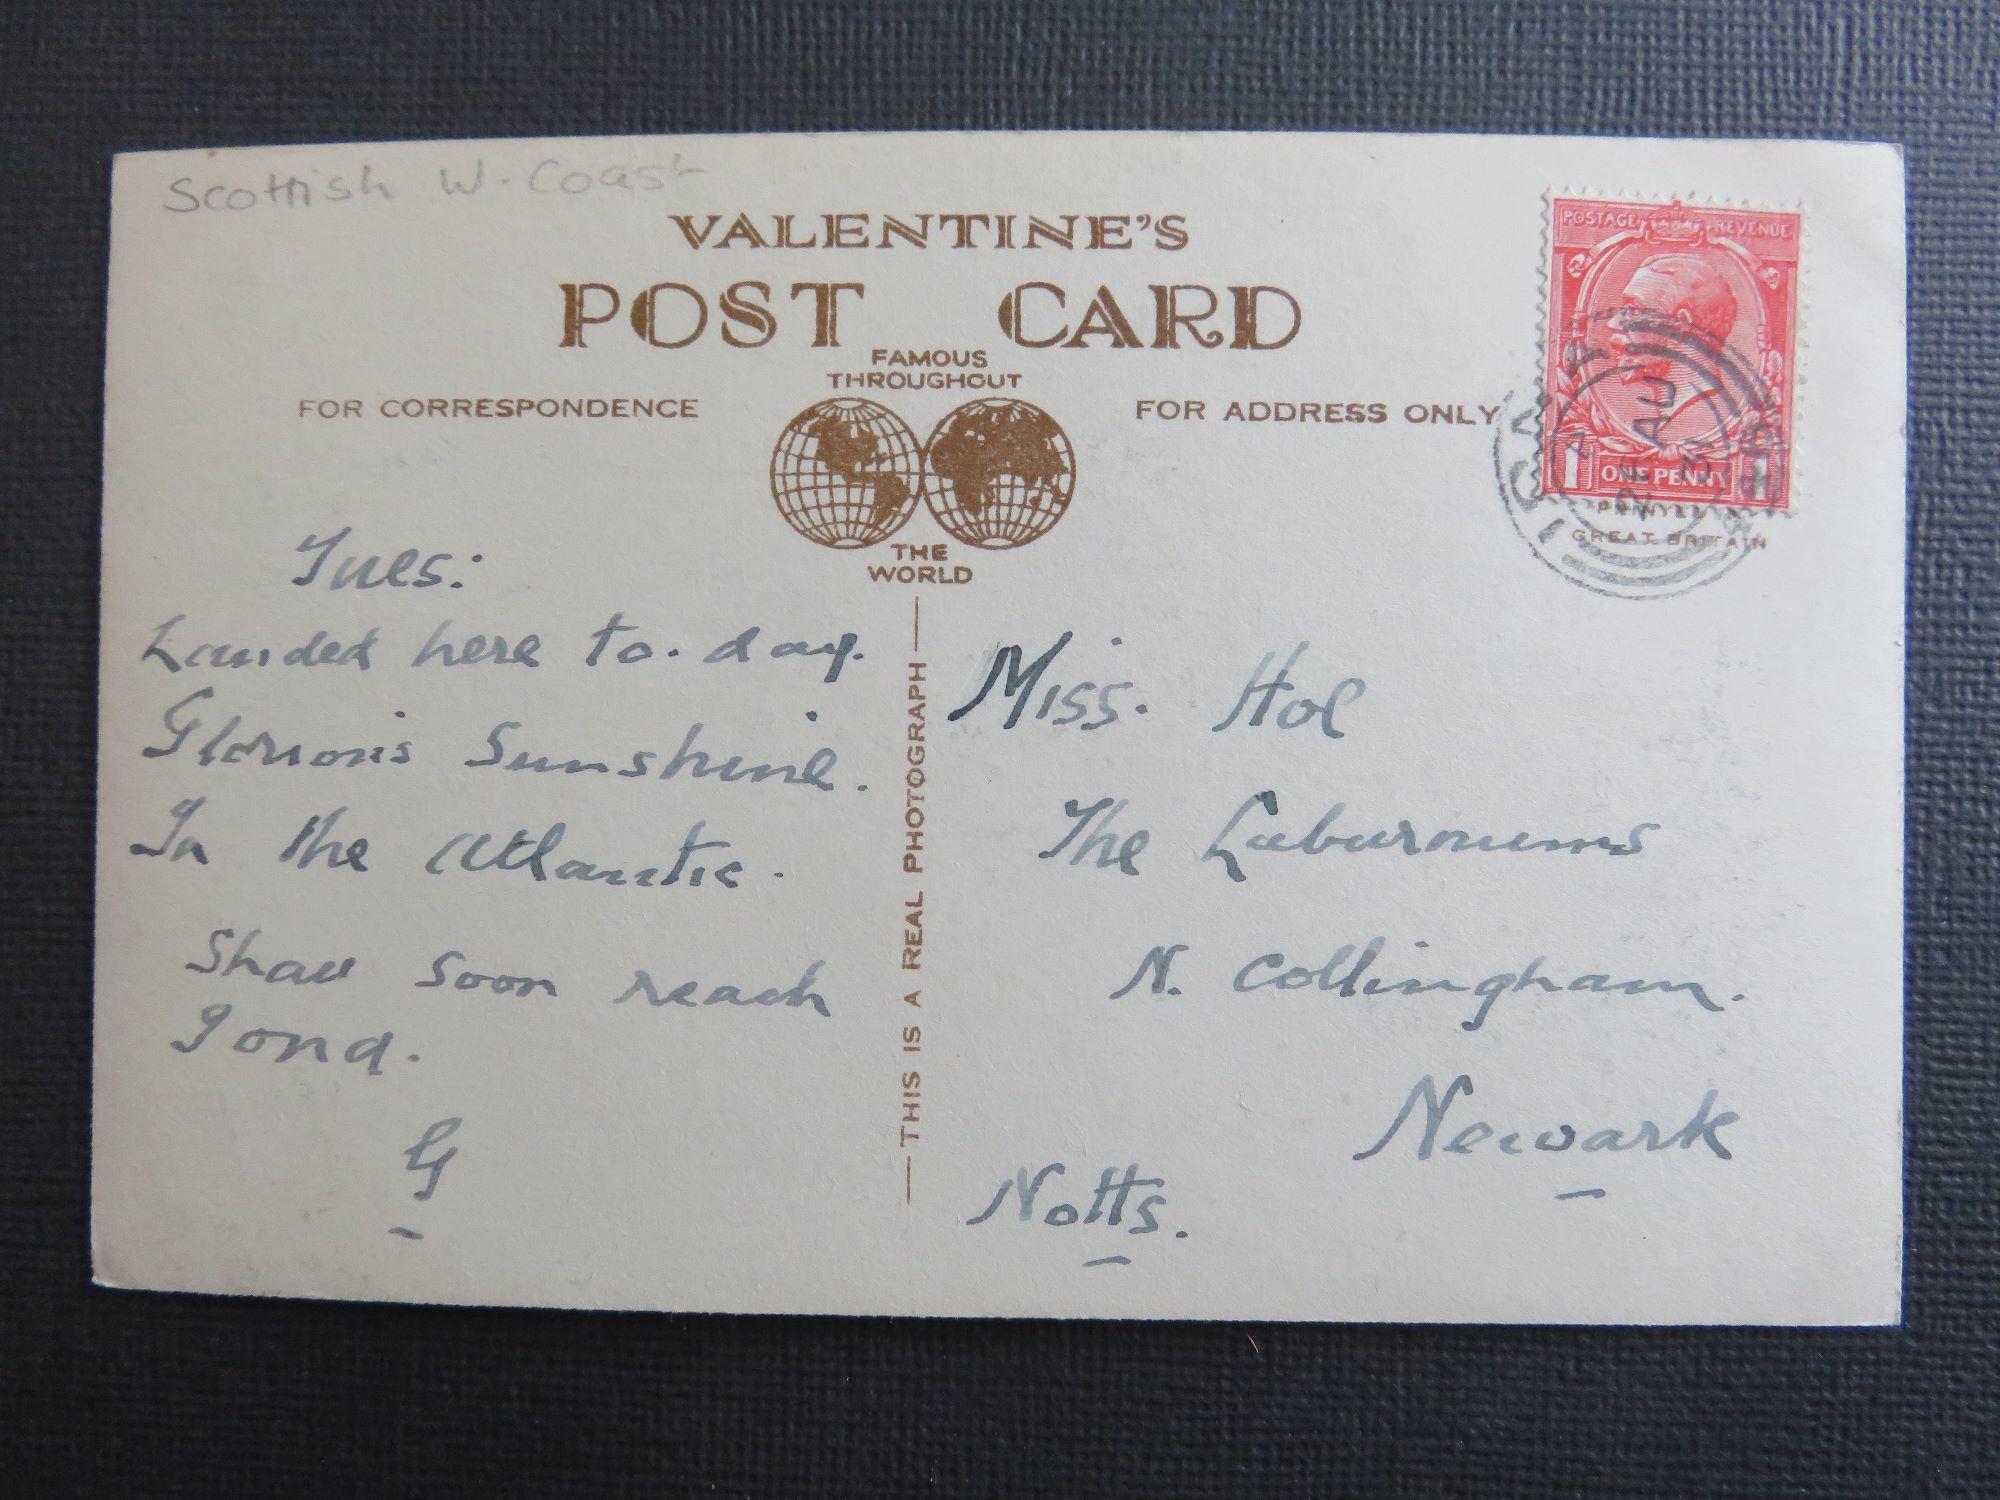 Scottish W. Coast
VALENTINE'S
POST CARD
FAMOUS
THROUGHOUT
THE
WORLD
FOR CORRESPONDENCE
FOR ADDRESS ONLY
POSTAGE REVENUE
1 ONE PENNY 1
GREAT BRITAIN
AU
THIS IS A REAL PHOTOGRAPH
Tues:
Landed here to-day.
Glorious Sunshine.
In the Atlantic.
Shall soon reach
Iona.
G
Miss. Hol
The Laburnums
N. Collingham.
Newark
Notts.